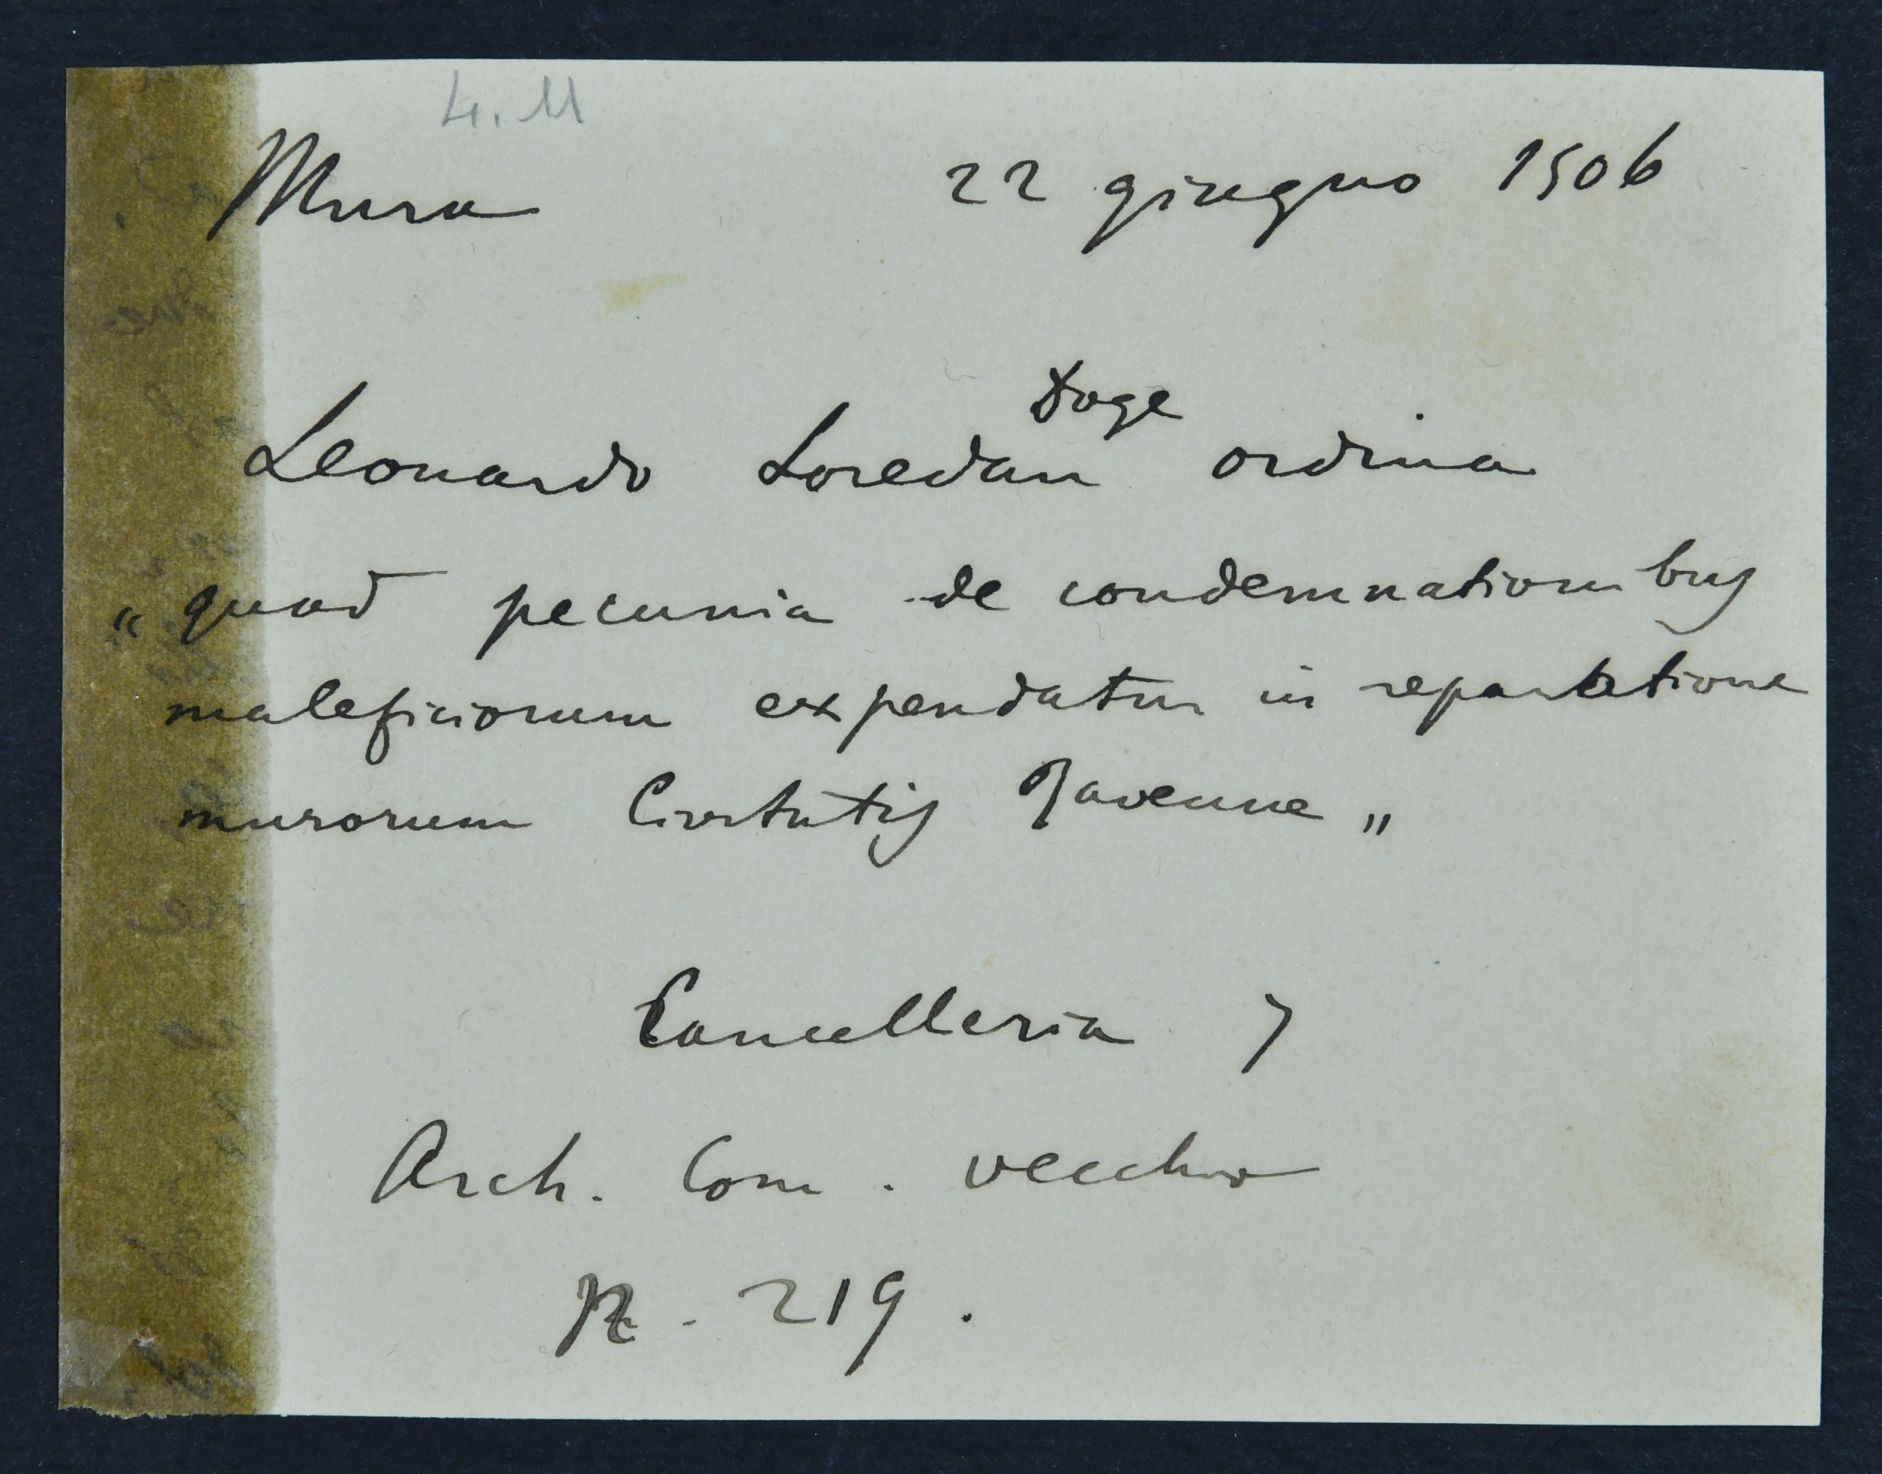 4. M
Mura 22 giugno 1506
Doge
Leonardo Loredan ordina
„quod pecunia de condemnationibus
maleficiorum expendatur in reparatione
murorum Civitatis Ravenne„
Cancelleria 7
Arch. Com. vecchio
219.